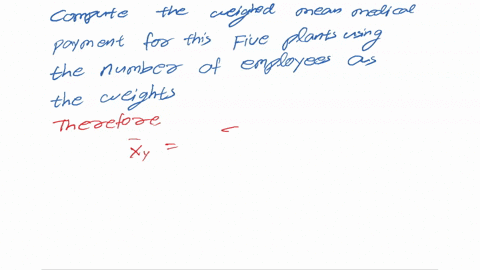 Compute the weighed mean medical
payment for this Five plants using
the number of employees as
the weights
Therefore
x̄y =